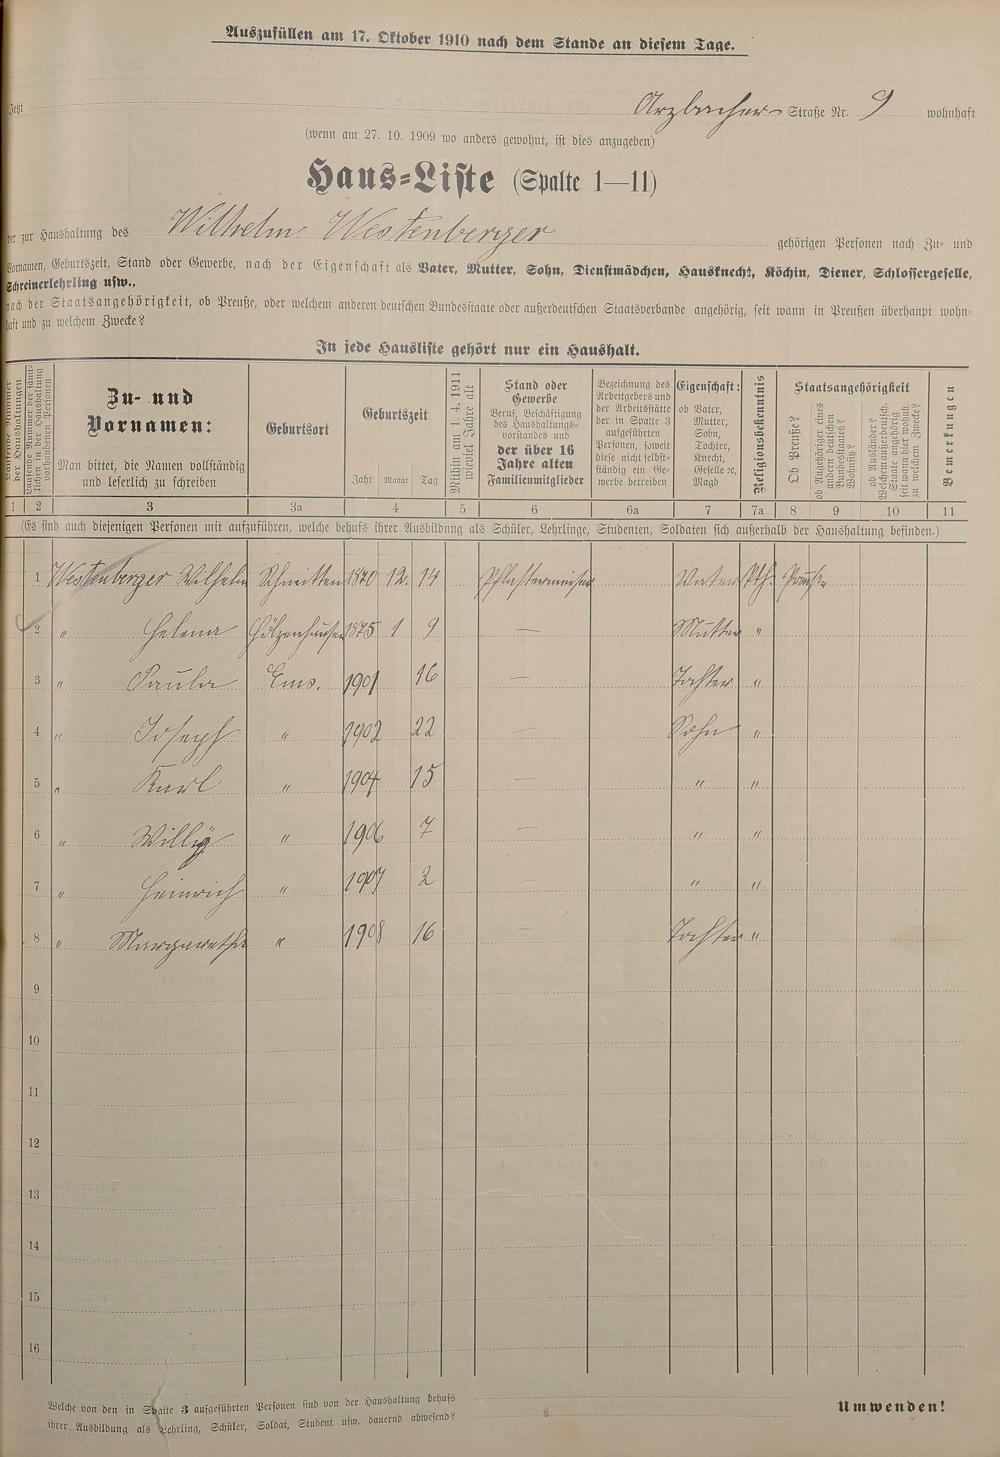 Auszufüllen am 17. Oktober 1910 nach dem Stande an diesem Tage.
Jetzt Arzbacher Straße Nr. 9 wohnhaft
(wenn am 27. 10. 1909 wo anders gewohnt, ist dies anzugeben)
Haus-Liste (Spalte 1—11)
der zur Haushaltung des Wilhelm Westenberger gehörigen Personen nach Zu- und
Vornamen, Geburtszeit, Stand oder Gewerbe, nach der Eigenschaft als Vater, Mutter, Sohn, Dienstmädchen, Hausknecht, Köchin, Diener, Schlossergeselle,
Schreinerlehrling usw.,
nach der Staatsangehörigkeit, ob Preuße, oder welchem anderen deutschen Bundesstaate oder außerdeutschen Staatsverbande angehörig, seit wann in Preußen überhaupt wohn-
haft und zu welchem Zwecke?
In jede Hausliste gehört nur ein Haushalt.
Laufende Nummer
der Haushaltungen
Laufende Nummer der sämt-
lichen in der Haushaltung
vorhandenen Personen
Zu- und
Vornamen:
Man bittet, die Namen vollständig
und leserlich zu schreiben
Geburtsort
Geburtszeit
Jahr Monat Tag
Mithin am 1. 4. 1911
wieviel Jahre alt
Stand oder
Gewerbe
Beruf, Beschäftigung
des Haushaltungs-
vorstandes und
der über 16
Jahre alten
Familienmitglieder
Bezeichnung des
Arbeitgebers und
der Arbeitsstätte
der in Spalte 3
aufgeführten
Personen, soweit
diese nicht selbst-
ständig ein Ge-
werbe betreiben
Eigenschaft:
ob Vater,
Mutter,
Sohn,
Tochter,
Knecht,
Geselle ꝛc,
Magd
Religionsbekenntnis
Staatsangehörigkeit
Ob Preuße?
ob Angehöriger eines
andern deutschen
Bundesstaates?
Wohnsitz?
ob Ausländer?
Welchem außerdeutsch.
Staate angehörig,
seit wann hier wohnh.
zu welchem Zwecke?
Bemerkungen
1 2 3 3a 4 5 6 6a 7 7a 8 9 10 11
(Es sind auch diejenigen Personen mit aufzuführen, welche behufs ihrer Ausbildung als Schüler, Lehrlinge, Studenten, Soldaten sich außerhalb der Haushaltung befinden.)
1 Westenberger Wilhelm Schmitten 1870 12. 14 Pflastermeister Vater Kth. Preuße
2 " Helena 1875 1 9 — Mutter "
3 " Paula Ems. 1901 16 — Tochter "
4 " Joseph " 1902 22 — Sohn "
5 " Karl " 1904 15 — " "
6 " Willy " 1906 7 — " "
7 " Heinrich " 1907 2 — " "
8 " Margaretha " 1908 16 — Tochter "
9
10
11
12
13
14
15
16
Welche von den in Spalte 3 aufgeführten Personen sind von der Haushaltung behufs
ihrer Ausbildung als Lehrling, Schüler, Soldat, Student usw. dauernd abwesend?
Umwenden!